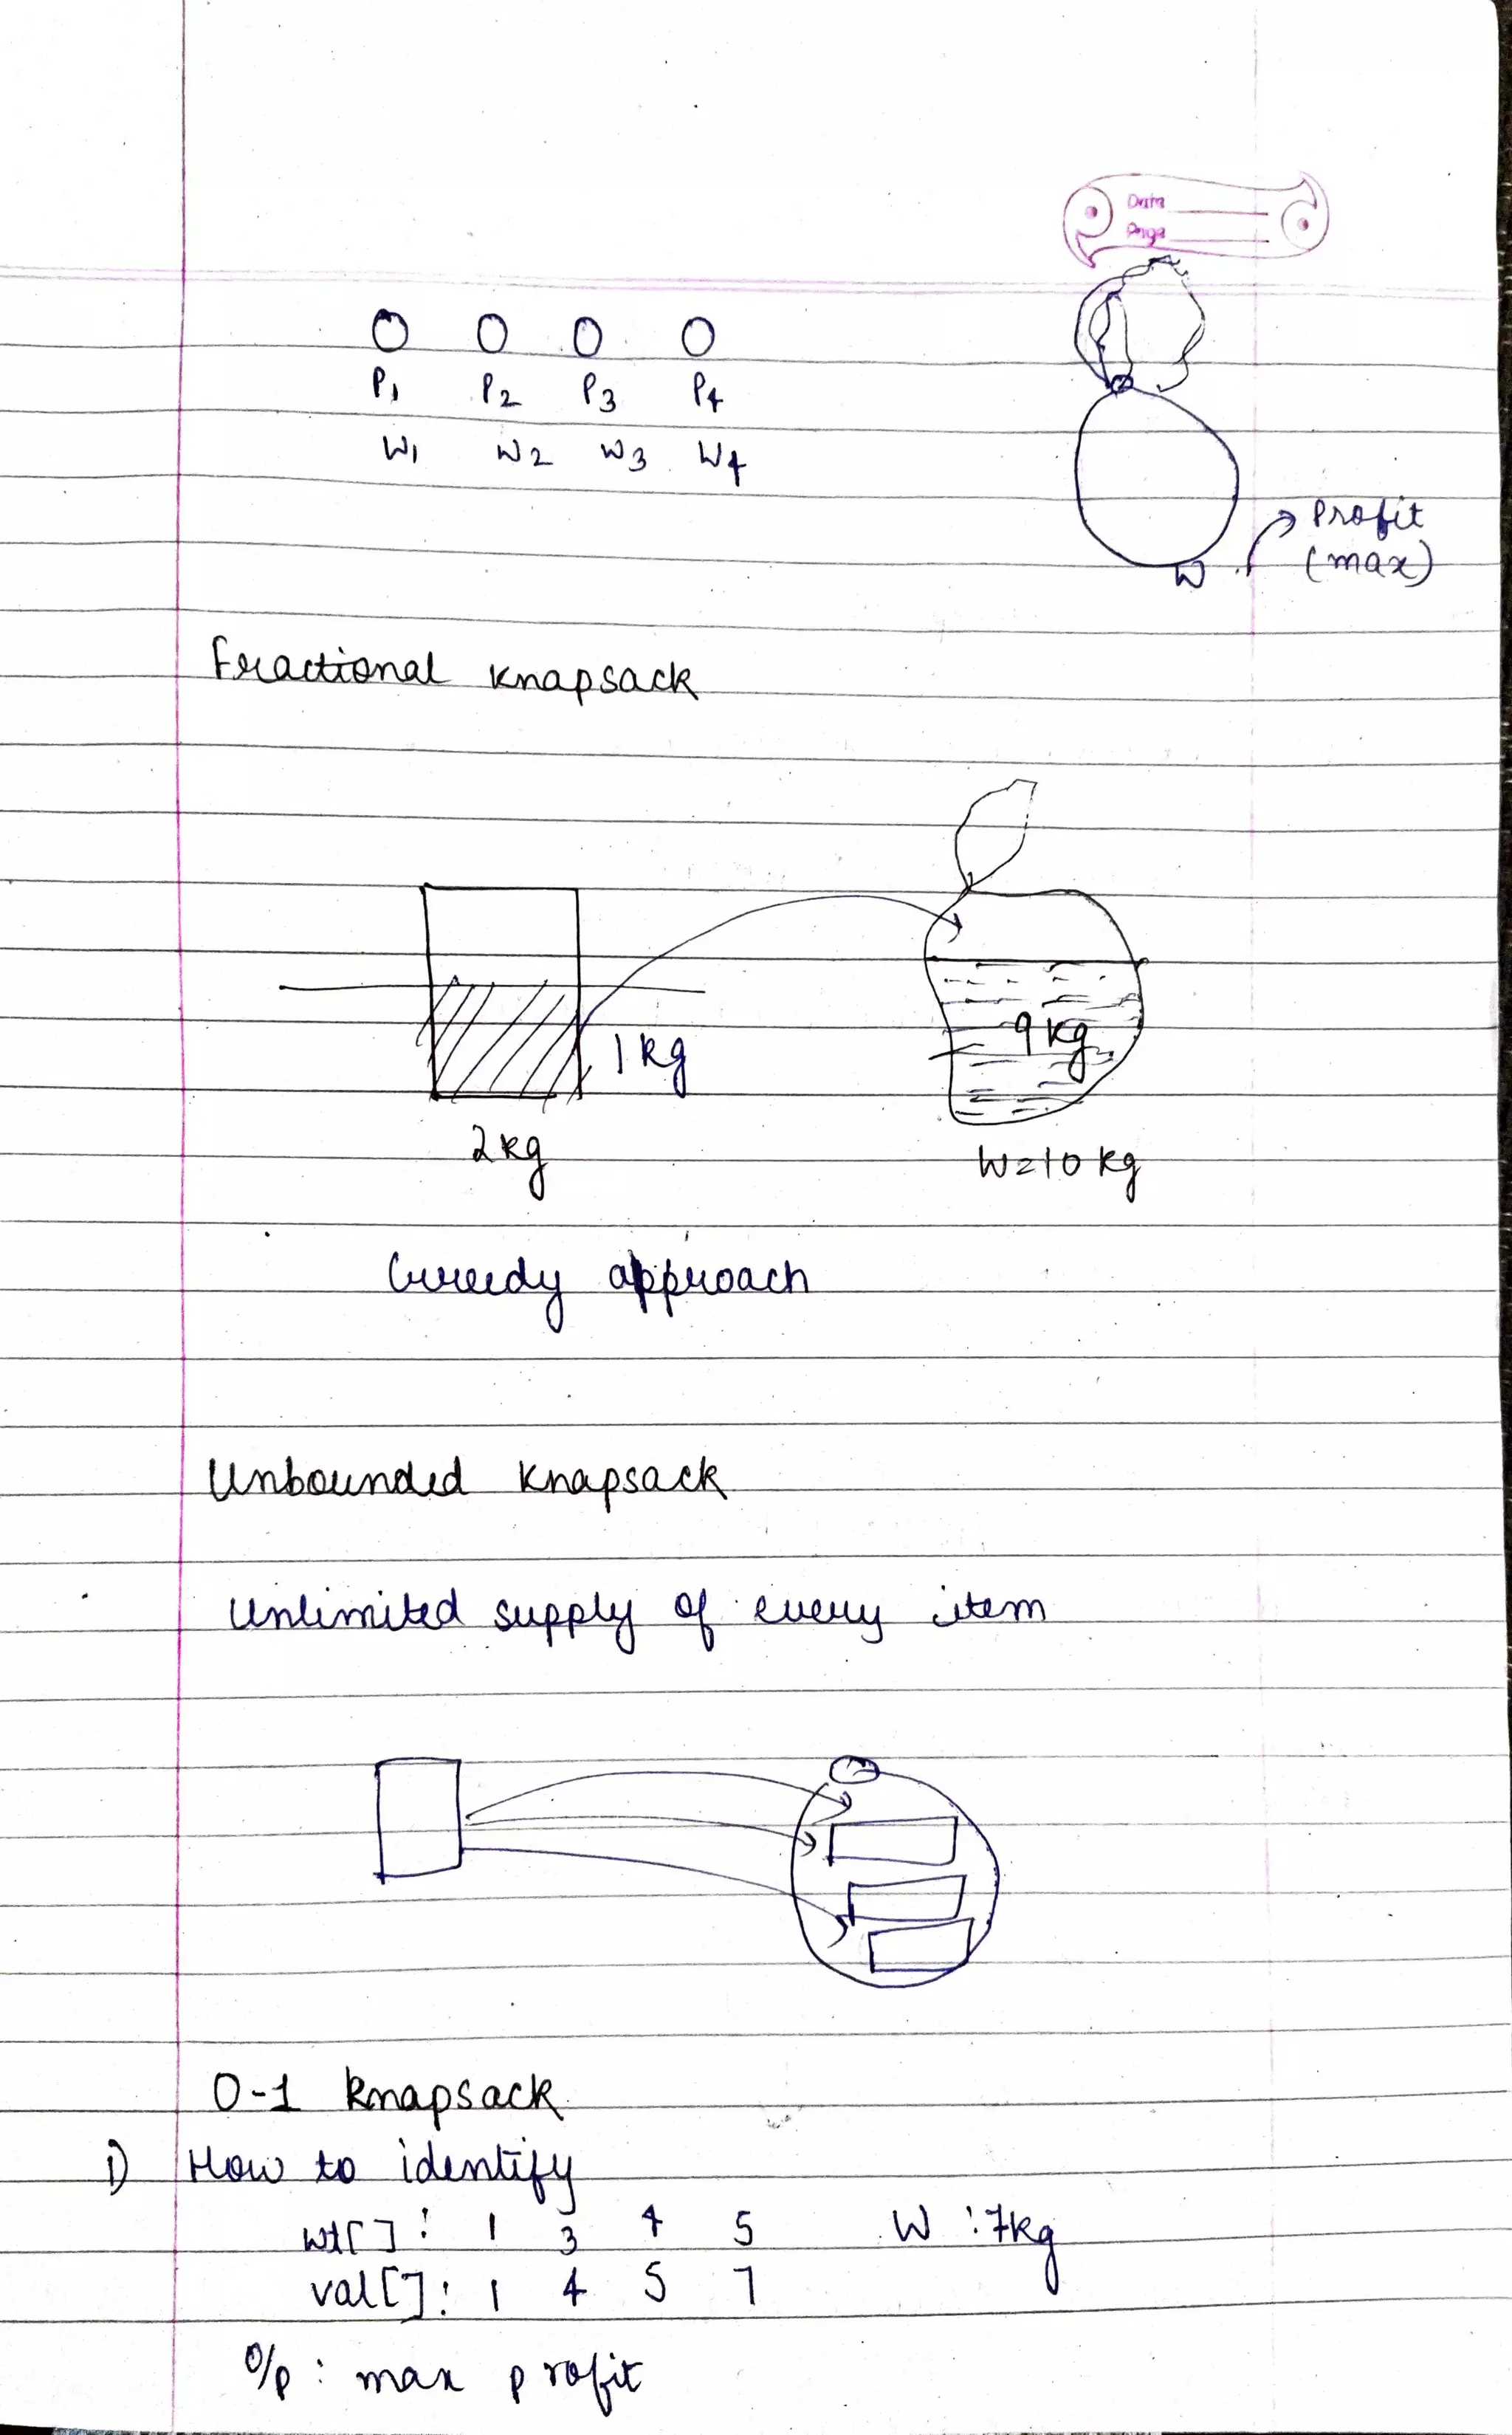 Date
Page
P1 P2 P3 P4
W1 W2 W3 W4
Profit
(max)
W
Fractional Knapsack
9 kg
1 kg
2 kg
W=10 kg
Greedy approach
Unbounded Knapsack
Unlimited supply of every item
0-1 Knapsack
1) How to identify
wt[ ] : 1 3 4 5 W : 7kg
val[ ] : 1 4 5 7
O/p : max profit